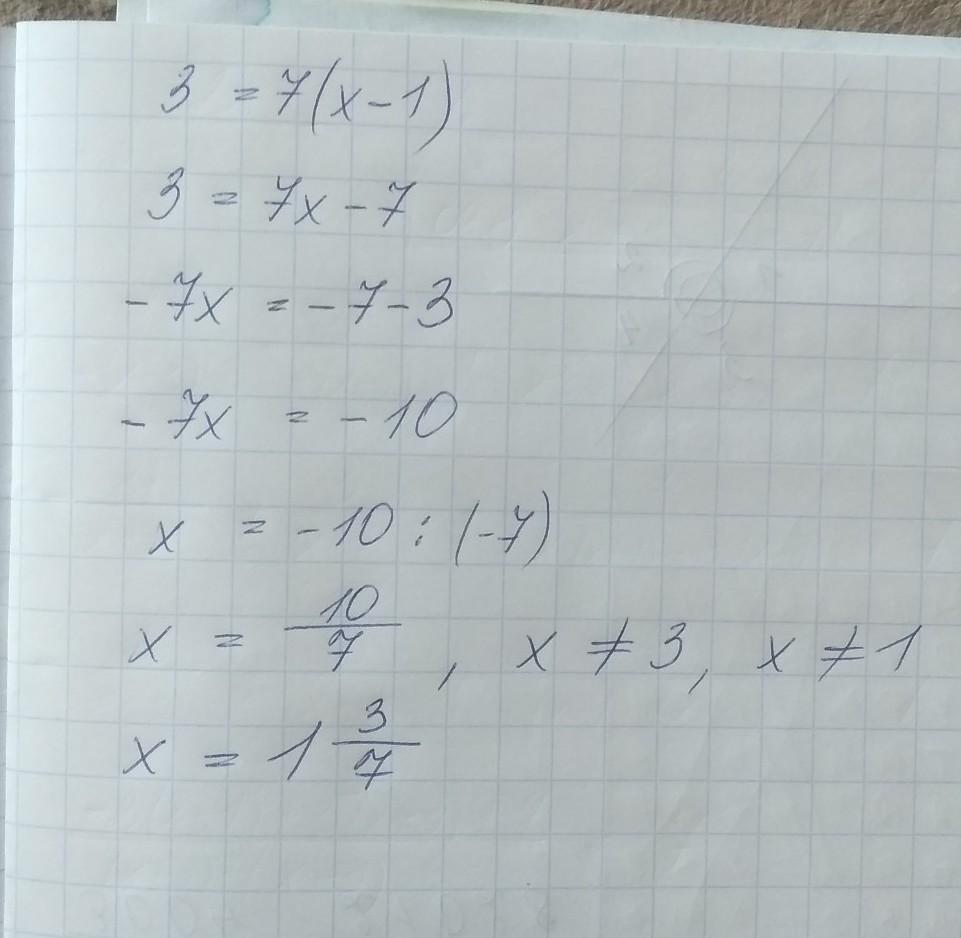 3 = 7(x-1)
3 = 7x-7
-7x = -7-3
-7x = -10
x = -10 : (-7)
x = 10/7, x ≠ 3, x ≠ 1
x = 1 3/7